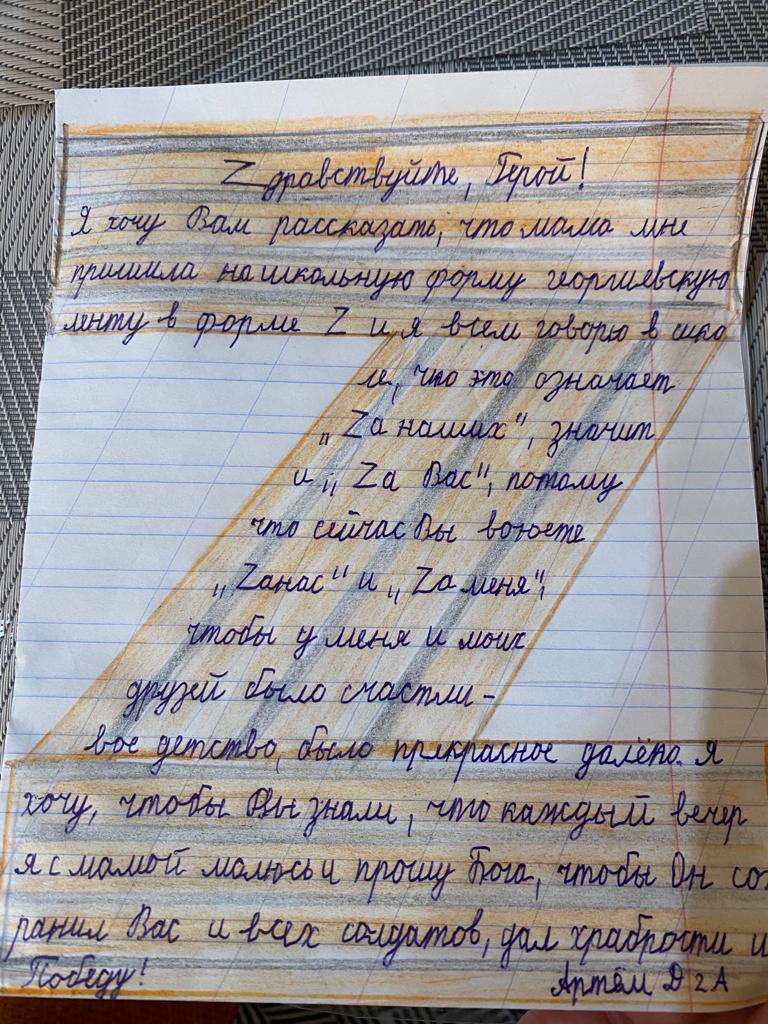 Zдравствуйте, Герой!
Я хочу Вам рассказать, что мама мне
пришила на школьную форму георгиевскую
ленту в форме Z и я всем говорю в шко
ле, что это означает
„Zа наших", значит
и „Zа Вас", потому
что сейчас Вы воюете
„Zа нас" и „Zа меня",
чтобы у меня и моих
друзей было счастли-
вое детство, было прекрасное далёко. Я
хочу, чтобы Вы знали, что каждый вечер
я с мамой молюсь и прошу Бога, чтобы Он сох
ранил Вас и всех солдатов, дал храбрости и
Победу!
Артём Д 2 А